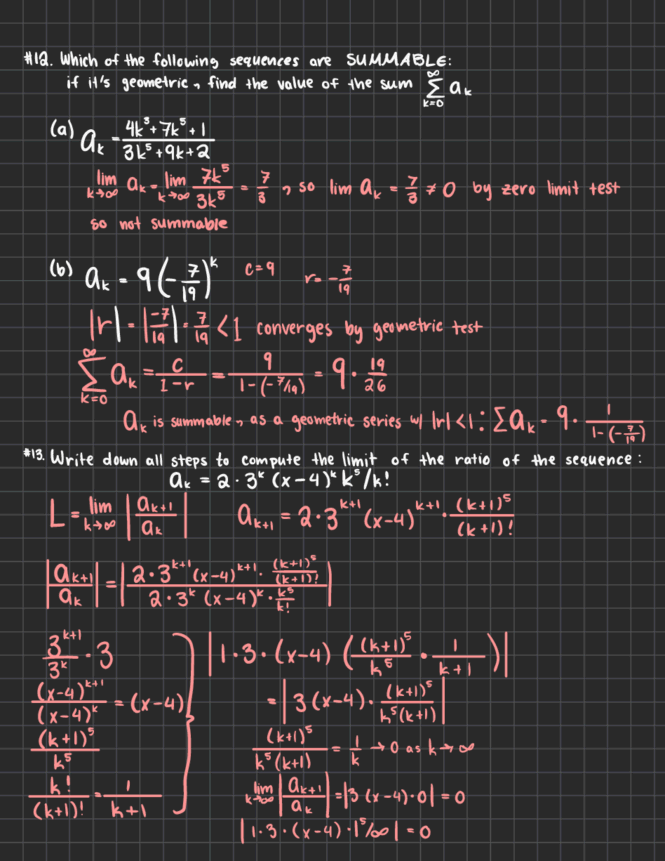 #12. Which of the following sequences are SUMMABLE:
if it's geometric, find the value of the sum ∑_{k=0}^{∞} a_k
(a) a_k = (4k^3+7k^5+1)/(3k^5+9k+2)
lim_{k→∞} a_k = lim_{k→∞} 7k^5/3k^5 = 7/3, so lim a_k = 7/3 ≠ 0 by zero limit test
so not summable
(b) a_k = 9(-7/19)^k c=9 r=-7/19
|r| = |-7/19| = 7/19 < 1 converges by geometric test
∑_{k=0}^{∞} a_k = c/(1-r) = 9/(1-(-7/19)) = 9 · 19/26
a_k is summable, as a geometric series w/ |r|<1: ∑a_k = 9 · 1/(1-(-7/19))
#13. Write down all steps to compute the limit of the ratio of the sequence:
a_k = 2·3^k (x-4)^k k^5/k!
L = lim_{k→∞} |a_{k+1}/a_k| a_{k+1} = 2·3^{k+1}(x-4)^{k+1} · (k+1)^5/(k+1)!
|a_{k+1}/a_k| = |(2·3^{k+1}(x-4)^{k+1} · (k+1)^5/(k+1)!)/(2·3^k (x-4)^k · k^5/k!)|
3^{k+1}/3^k · 3
(x-4)^{k+1}/(x-4)^k = (x-4)
(k+1)^5/k^5
k!/(k+1)! = 1/(k+1)
|1·3·(x-4) ((k+1)^5/k^5 · 1/(k+1))|
= |3(x-4) · (k+1)^5/(k^5(k+1))|
(k+1)^5/(k^5(k+1)) = 1/k → 0 as k→∞
lim_{k→∞} |a_{k+1}/a_k| = |3(x-4)·0| = 0
|1·3·(x-4)·1^5/∞| = 0